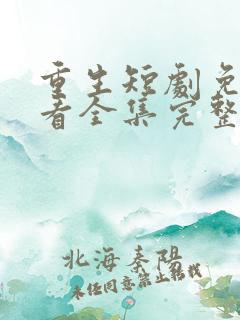 重生短劇免
看全集完整
北海秦陽
未经同意禁止转载